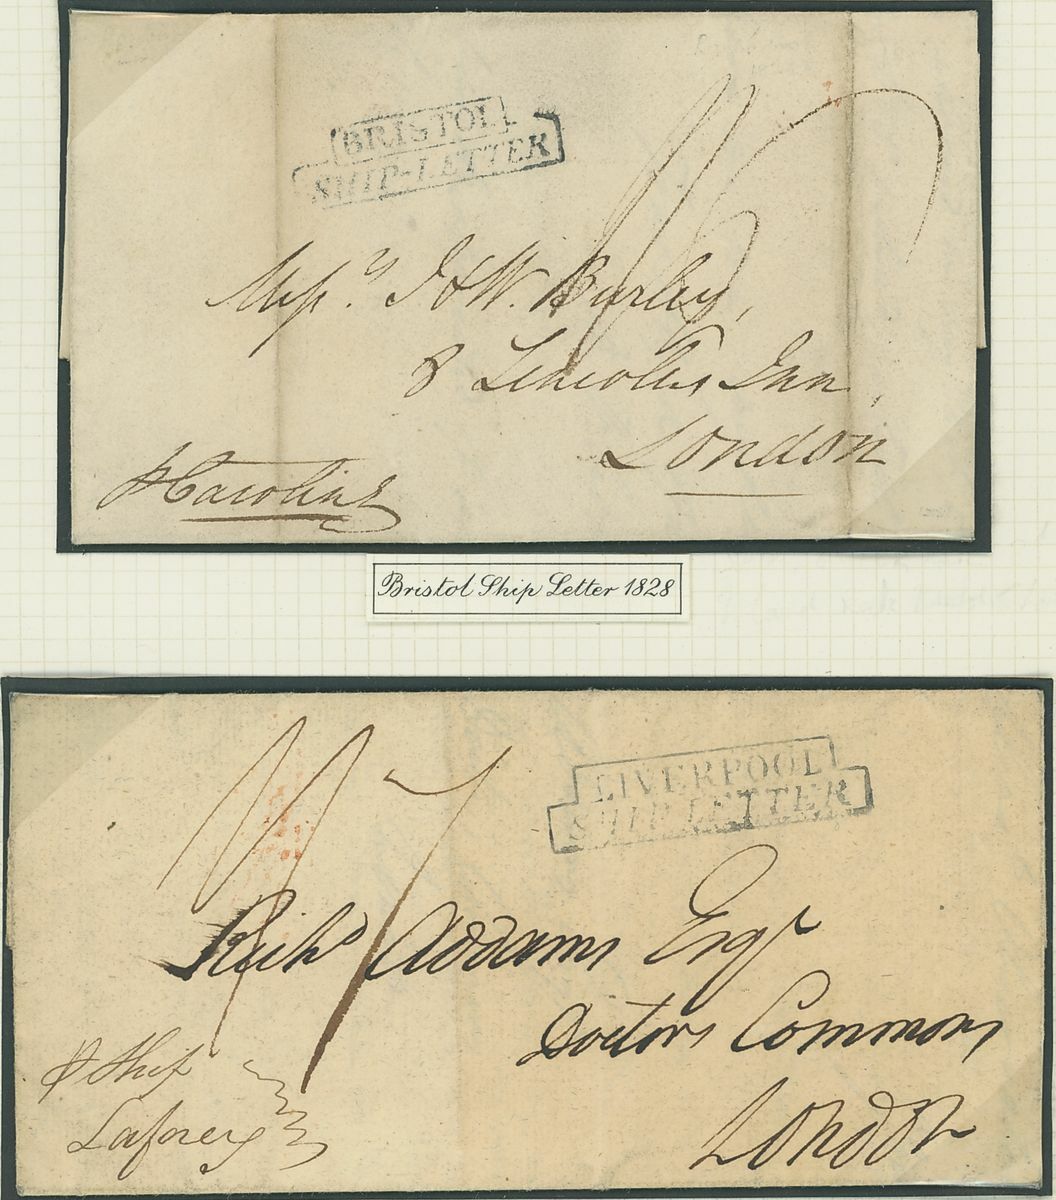 BRISTOL
SHIP-LETTER
1/6
Messrs J & W. Burley,
8 Lincolns Inn,
London
p Caroline
Bristol Ship Letter 1828
LIVERPOOL
SHIP LETTER
1/7
Richd Addams Esqr
Doctors Commons
London
p Ship